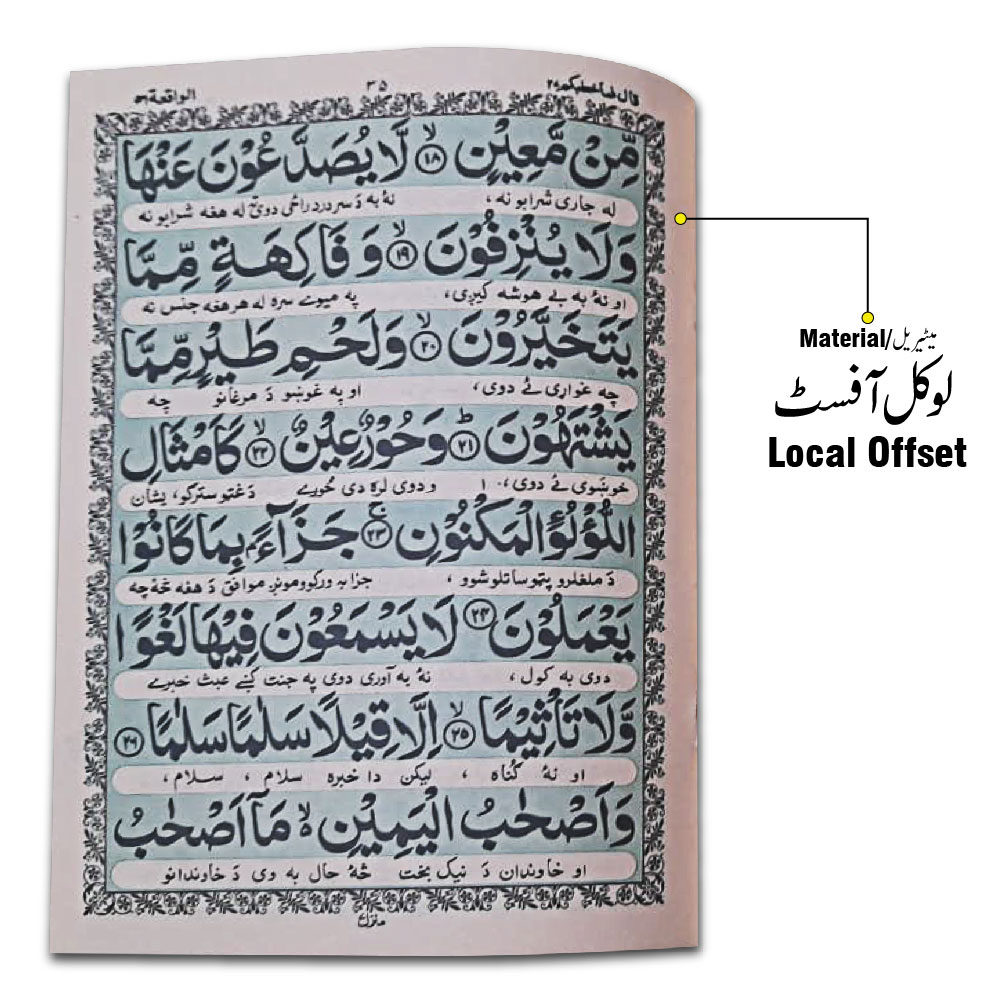 قال فما خطبكم ٢٧
٣٥
الواقعة ٥٦
مِّنْ مَّعِیْنٍۙ ﴿١٨﴾ لَّا یُصَدَّعُوْنَ عَنْهَا
له جاری شرابونه، نهٔ به د سر درد راځی دوئ له هغه شرابو نه
وَلَا یُنْزِفُوْنَۙ ﴿١٩﴾ وَ فَاكِهَةٍ مِّمَّا
او نهٔ به بے هوشه کیږی، په میوے سره له هر هغه جنس نه
یَتَخَیَّرُوْنَۙ ﴿٢٠﴾ وَلَحْمِ طَیْرٍ مِّمَّا
چه غواری ئے دوی، او په غوښو د مرغانو چه
یَشْتَهُوْنَؕ ﴿٢١﴾ وَحُوْرٌ عِیْنٌۙ ﴿٢٢﴾ كَاَمْثَالِ
خوښوی ئے دوی، ١٠ و دوی لره دی حُورے دغټو سترګو، پشان
اللُّؤْلُؤِ الْمَكْنُوْنِۚ ﴿٢٣﴾ جَزَآءًۢ بِمَا كَانُوْا
د ملغلرو پټو ساتلو شوو، جزا به ورکوو مونږ موافق د هغه څه چه
یَعْمَلُوْنَ ﴿٢٤﴾ لَا یَسْمَعُوْنَ فِیْهَا لَغْوًا
دوی به کول، نهٔ به آوری دوی په جنت کښے عبث خبرے
وَّلَا تَاْثِیْمًاۙ ﴿٢٥﴾ اِلَّا قِیْلًا سَلٰمًا سَلٰمًا ﴿٢٦﴾
او نهٔ ګناه، لیکن دا خبره سلام، سلام،
وَاَصْحٰبُ الْیَمِیْنِ ۙ۬ مَاۤ اَصْحٰبُ
او خاوندان د نیک بخت څهٔ حال به وی د خاوندانو
منزل
Material/میٹیریل
لوکل آفسٹ
Local Offset